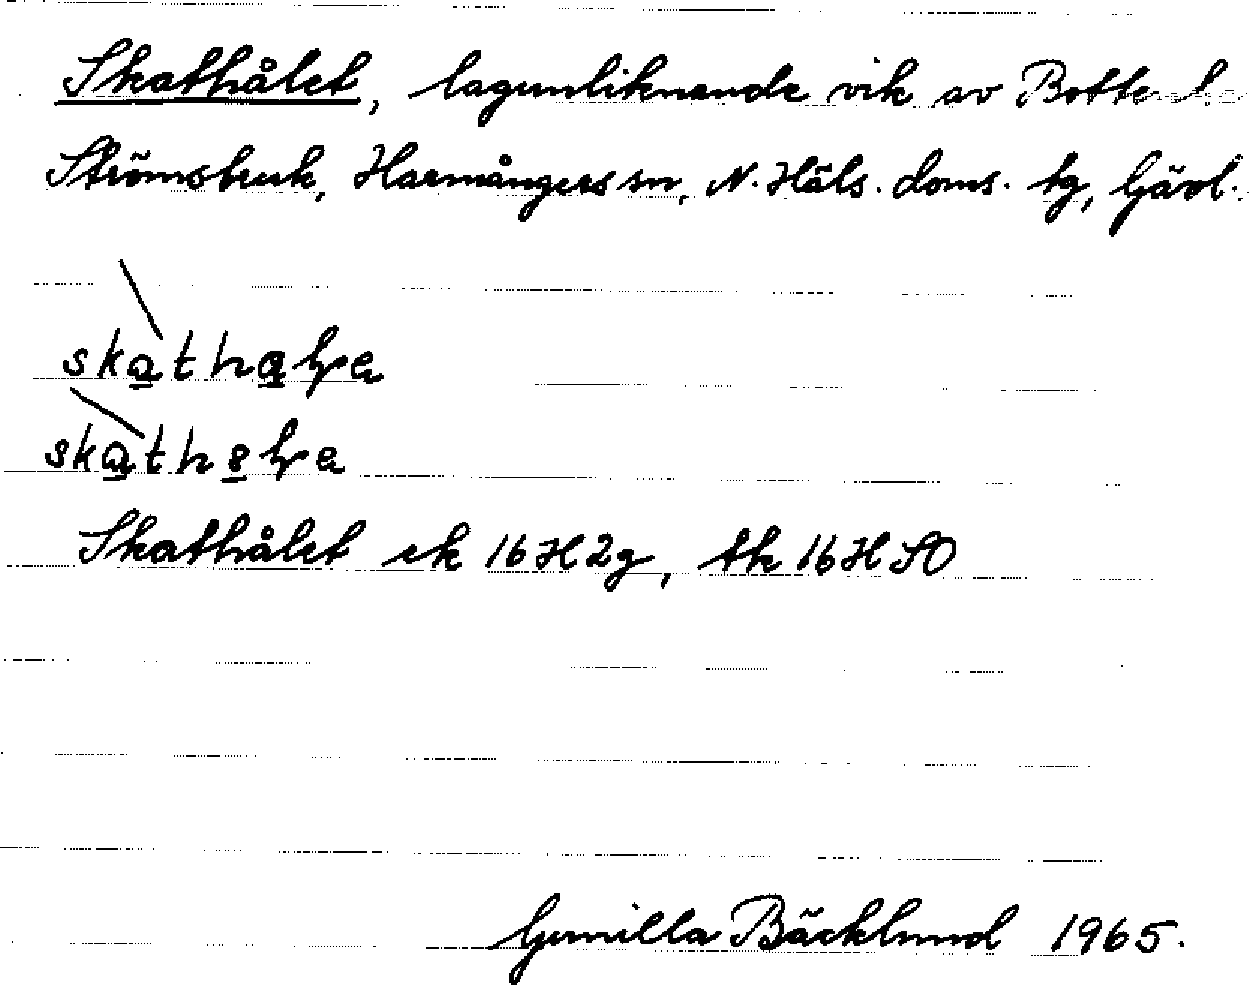 Skathålet, lagunliknande vik av Botte
Strömsbruk, Harmångers sn, N. Häls. doms. tg, Gävl.
skathålet ek 16H2g, tk 16H SO
Gunilla Bäcklund 1965.